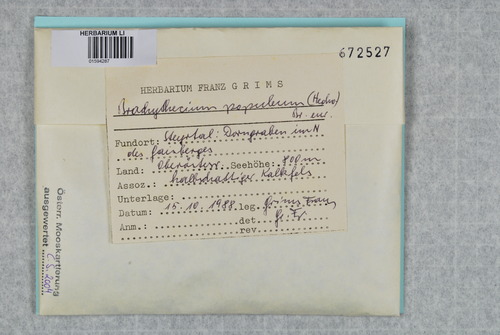 HERBARIUM LI
01594287
672527
HERBARIUM FRANZ GRIMS
Brachythecium populeum (Hedw.)
Br. eur.
Fundort: Steyrtal: Dorngraben im N
des Gaisberges
Land: Oberösterr. Seehöhe: 800m
Assoz.: halbschattiger Kalkfels
Unterlage:
Datum: 15.10.1988 leg. Grims Franz
Anm.: det Gr. Fr.
rev
Österr. Mooskartierung
ausgewertet